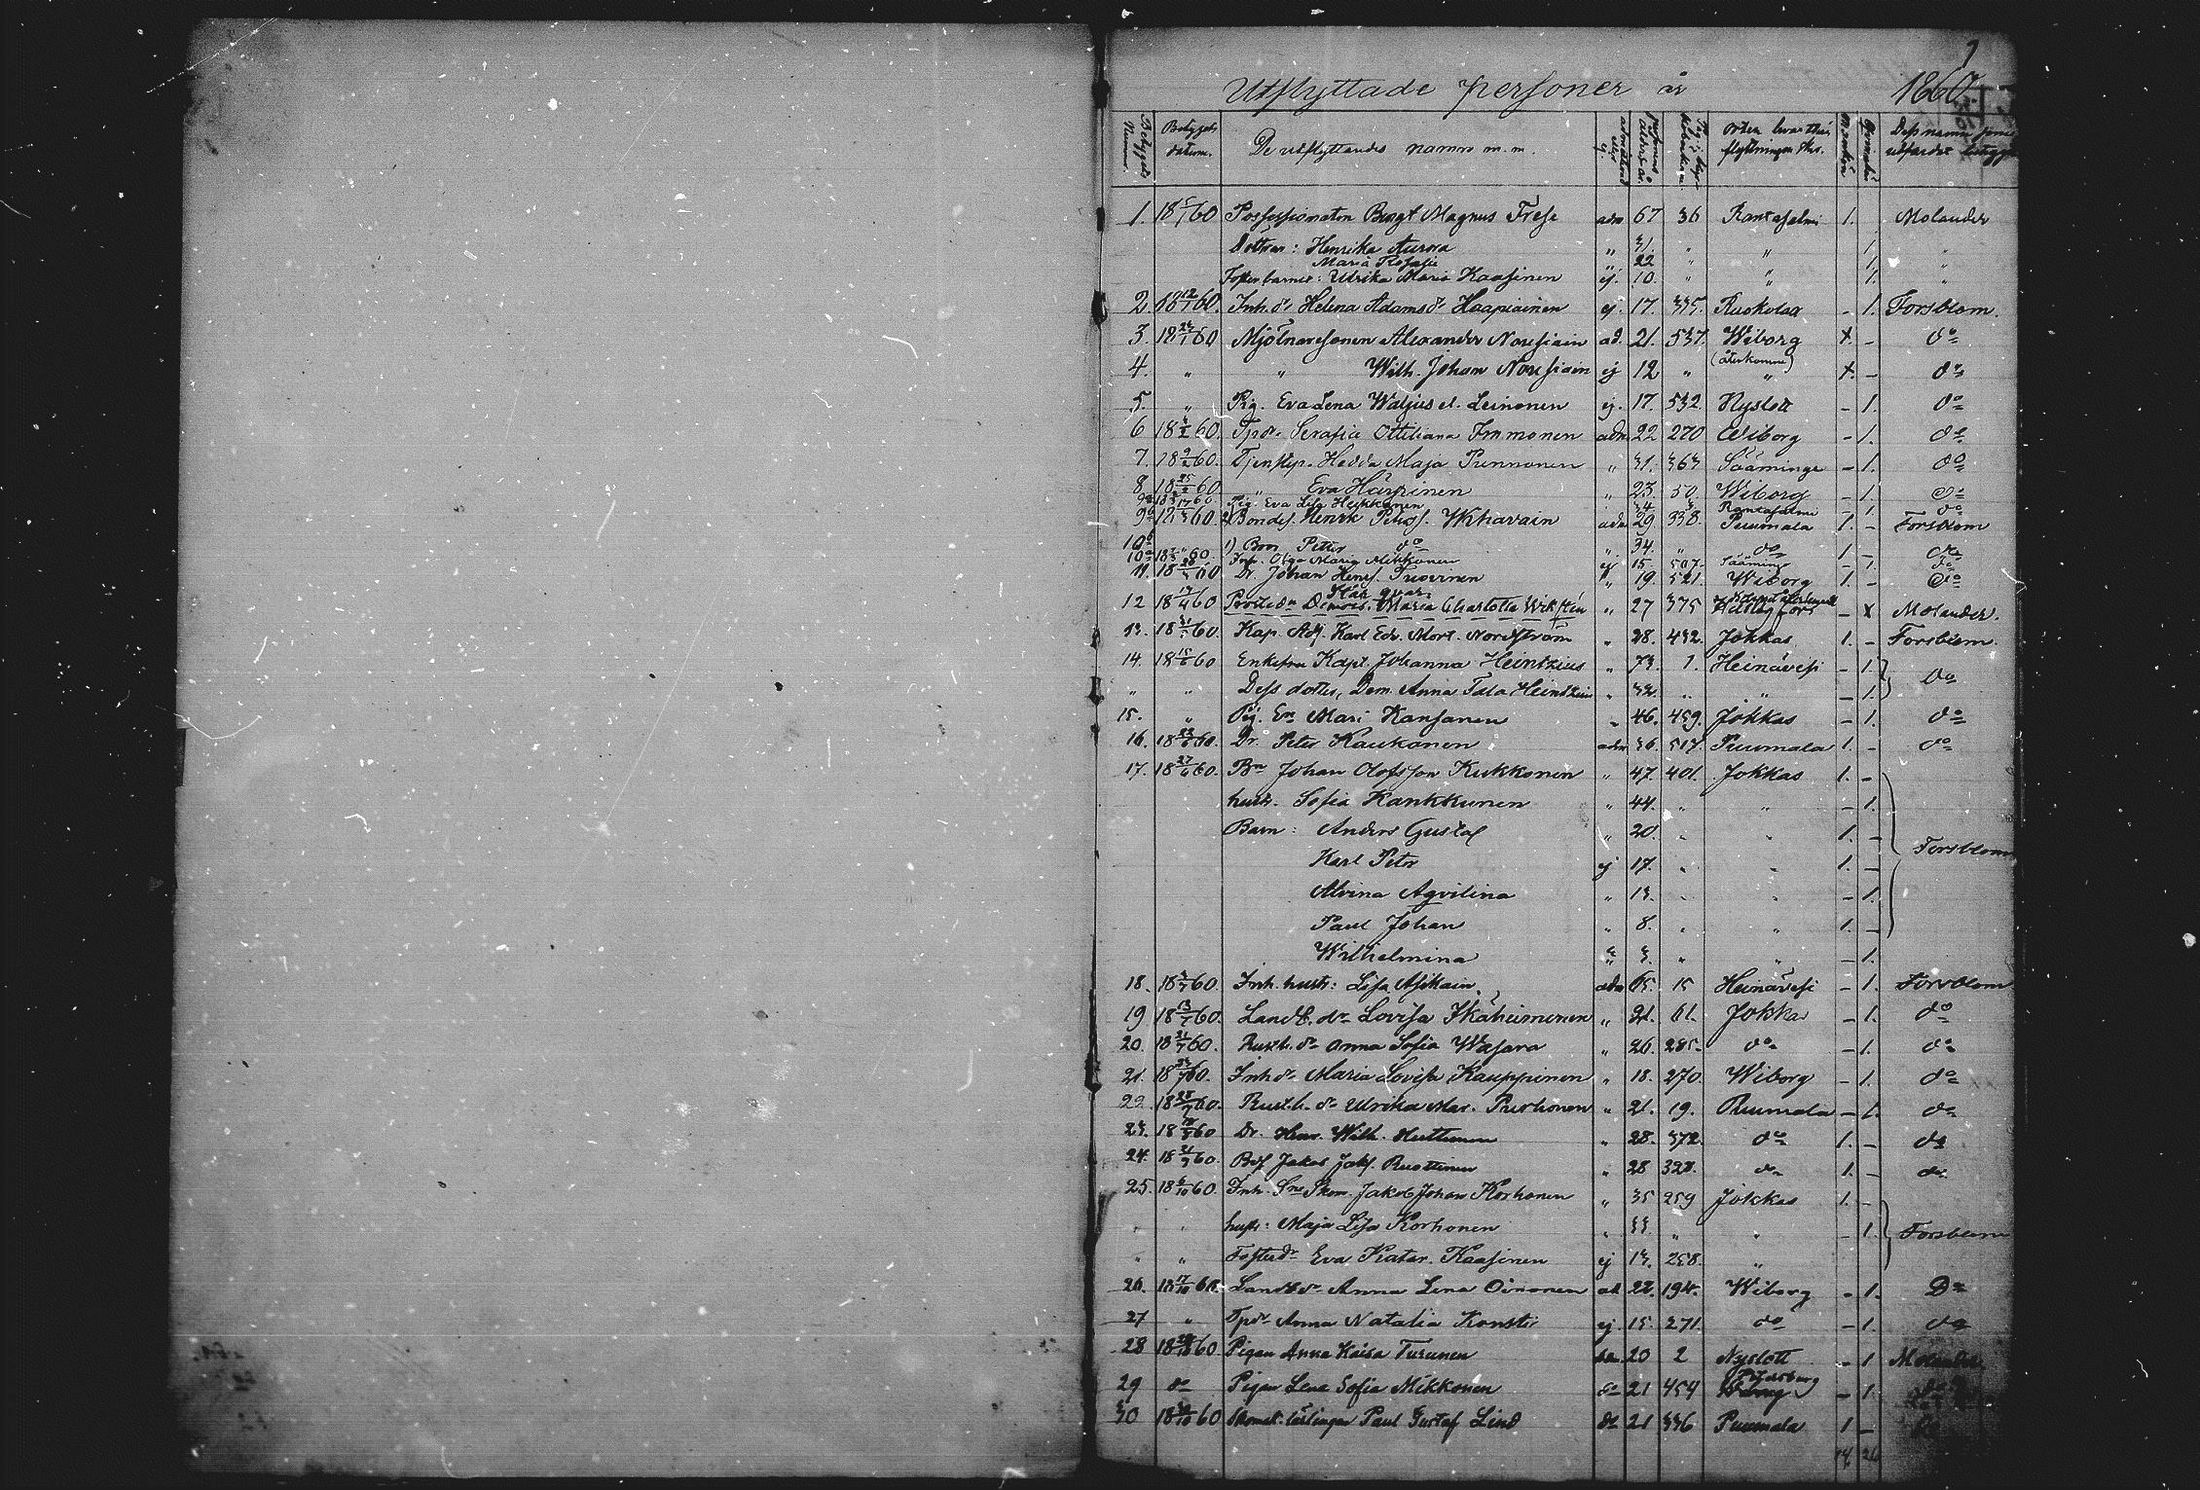 1
Utflyttade personer år 1860.
Betygets Nummer. Betygets datum. De utflyttandes namn m. m. admitterad eller ej personens ålders år. Pag. i kyrkoboken orten hvarthän flyttningen sker. Mankön Qvinnkön Dess namn som utfärdat betyget
1. 18 5/1 60 Possessionaten Bengt Magnus Frese adm 67 36 Rantasalmi 1. Molander
Döttrar: Henrika Aurora " 31. " " 1. "
Maria Rosalie " 22 " " 1. "
Fosterbarnet: Ulrika Maria Kaasinen ej. 10. " " 1. "
2. 18 12/1 60. Inh. dr Helena Adamsdr Haapiainen ej. 17. 335. Ruokolax - 1. Forsblom.
3. 18 24/1 60 Mjölnaresonen Alexander Nousiain ad. 21. 537. Wiborg x. - do
4. " " Wilh. Johan Nousiain ej 12 " (återkomne) " x. - do
5. " Pig. Eva Lena Waljus el. Leinonen ej. 17. 532. Nyslott - 1. do
6 18 4/2 60. Tpdr. Serafia Ottiliana Immonen adm 22 270 Wiborg - 1. do
7. 18 9/2 60. Tjenstep. Hedda Maja Punnonen " 31. 363 Sääminge - 1. do
8. 18 25/2 60 " Eva Härpinen " 23. 50. Wiborg - 1. do
Pig. Eva Lisa Heikkonen Rantasalmi - 1. do
9b 18 60. 2) Bondes. Henrik Petersf. Wihavain adm 29 338. Puumala 1. - Forsblom
10a " 1) Bror Petter do " 34. " do 1 - do
10b 18 60 Inh. Olga Maria Mikkonen ej 15. 507. Sääminge - 1. do
11. 18 60 Dr. Johan Henr. Tuovinen " 19. 521. Wiborg 1. - do
står qvar
12 18 17/4 60 Prostedr Demois. Maria Charlotta Wikstén " 27 375 Helsingfors - x Molander.
13. 18 60. Kap. Adj. Karl Edv. Mort. Nordström " 28. 432. Jokkas 1. - Forsblom.
14. 18 15/6 60 Enkefru Kapt. Johanna Heintzius " 73 1. Heinävesi - 1. do
" " Dess dotter, Dem. Anna Tala Heintzius " 32. " " - 1.
15. " Pig. Eva Mari Kansanen " 46. 459. Jokkas - 1. do
16. 18 23/6 60. Dr. Peter Kaukonen adm 36. 517. Puumala 1. - do
17. 18 27/6 60. Bn Johan Olofsson Kukkonen " 47. 401. Jokkas 1. -
hustr. Sofia Kankkunen " 44. " " - 1.
Barn: Anders Gustaf " 20. " " 1. - Forsblom
Karl Peter ej 17. " " 1. -
Alvina Agvilina " 13. " " - 1.
Paul Johan " 8. " " 1. -
Wilhelmina " 3. " " - 1.
18. 18 4/7 60. Inh. hustr: Lisa Asikain. adm 65. 15 Heinävesi - 1. Forsblom
19 18 13/7 60. Landb. dr Lovisa Ikäheimonen " 21. 61. Jokkas - 1. do
20. 18 21/7 60. Rusth. dr Anna Sofia Wasara " 26. 285. do - 1. do
21. 18 60. Inh dr Maria Lovisa Kauppinen " 18. 270. Wiborg - 1. do
22. 18 60. Rusth. dr Ulrika Mar. Purhonen " 21. 19. Puumala - 1. do
23. 18 60 Dr. Henr. Wilh. Huttunen " 28. 372. do 1. - do
24. 18 21/9 60. Bds Jakob Jaks. Ruottinen " 28 328. do 1. - do
25. 18 6/10 60. Inh. Sne Skom. Jakob Johan Korhonen " 35 259 Jokkas 1. -
" " hustr: Maja Lisa Korhonen " 33. " " - 1. Forsblom
" " Fosterdr Eva Katar. Kaasinen ej 13. 258. "
26. 18 17/10 60. Landbdr Anna Lena Oinonen ad. 22. 194. Wiborg - 1. Do
27 " Tpdr Anna Natalia Konsti ej. 15. 271. do - 1. do
28 18 60 Pigan Anna Kaisa Turunen 20 2 Nyslott - 1 Molander
29 do Pigan Lena Sofia Mikkonen do 21 454 Petersburg - 1. do
30 18 60 Skomak: lärlingen Paul Gustaf Lind do 21 336 Puumala 1 -
14. 26